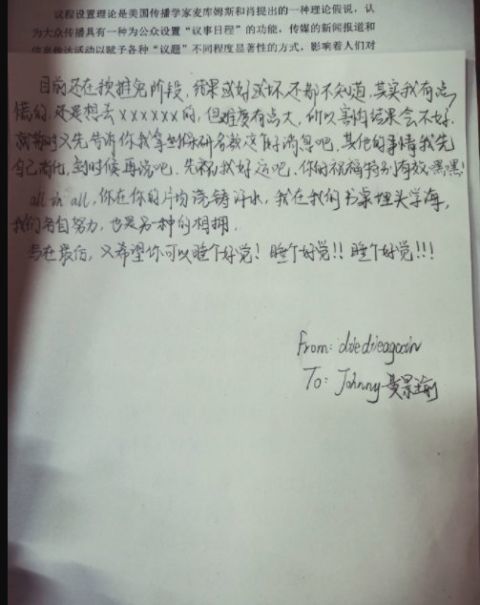 议程设置理论是美国传播学家麦库姆斯和肖提出的一种理论假说，认
为大众传播具有一种为公众设置“议事日程”的功能，传媒的新闻报道和
信息传达活动以赋予各种“议题”不同程度显著性的方式，影响着人们对
目前还在预推免阶段，结果或好或坏还都不知道，其实我有点
慌的，还是想去xxxxxx的，但难度有点大，所以害怕结果会不好。
就暂时先告诉你我拿到保研名额这个好消息吧，其他的事情我先
自己消化，到时候再说吧。先祝我好运吧，你的祝福特别有效，嘿嘿！
all in all，你在你的片场流铸汗水，我在我的书桌埋头学海，
我们各自努力，也是另一种的相拥。
写在最后，又希望你可以睡个好觉！睡个好觉！！睡个好觉！！！
From: diedieagain
To: Johnny-黄景瑜